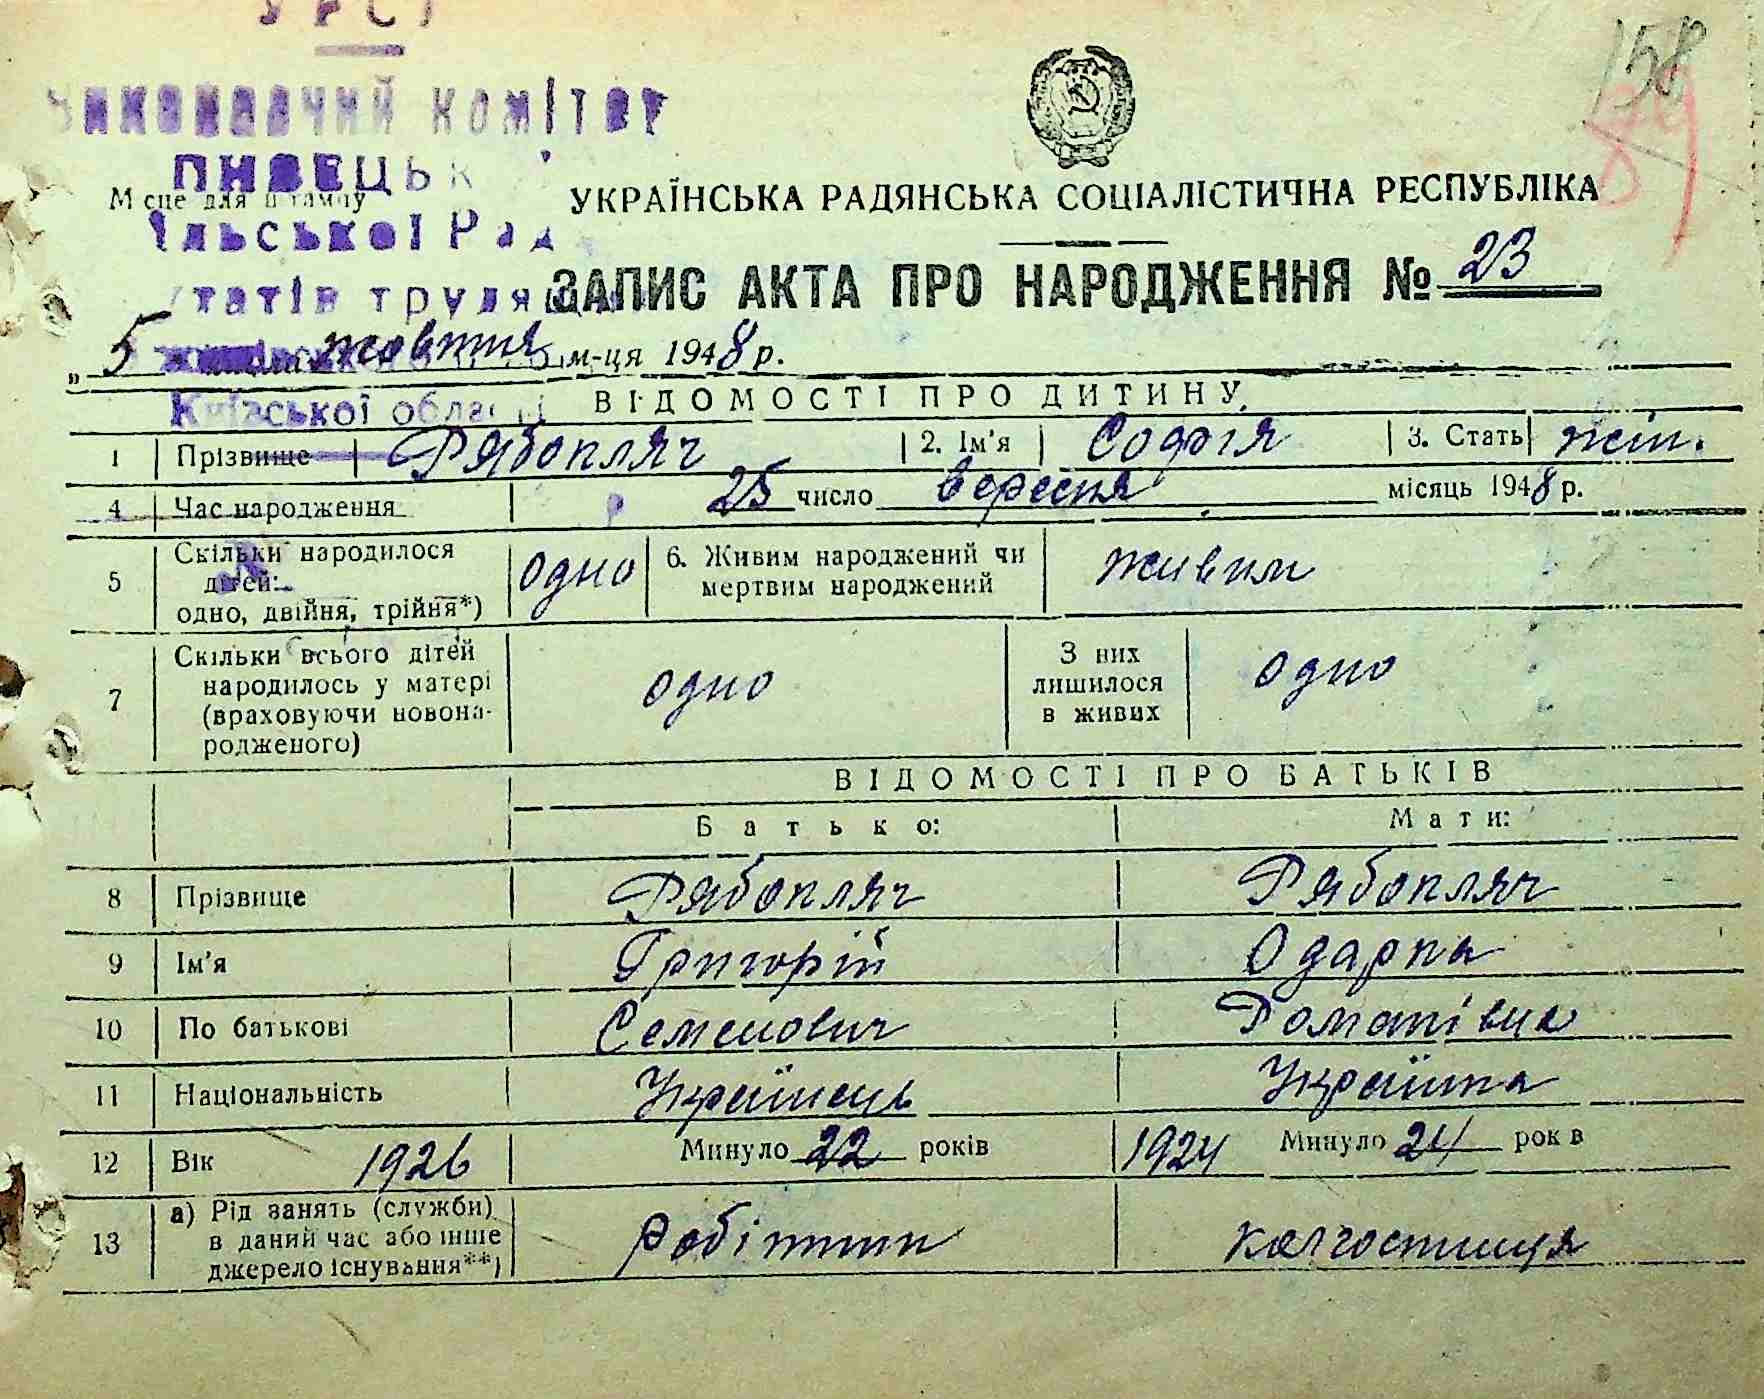 УРСР
Виконавчий комітет
158
84
Місце для штампу
УКРАЇНСЬКА РАДЯНСЬКА СОЦІАЛІСТИЧНА РЕСПУБЛІКА
ільської Рад
ЗАПИС АКТА ПРО НАРОДЖЕННЯ № 23
татів трудя
„ 5 жовтня м-ця 1948 р.
Київської області
ВІДОМОСТІ ПРО ДИТИНУ
1 Прізвище Рябопляч 2. Ім'я Софія 3. Стать жін.
4 Час народження 25 число вересня місяць 1948 р.
5 Скільки народилося дітей: одно, двійня, трійня*) одно 6. Живим народжений чи мертвим народжений живим
7 Скільки всього дітей народилось у матері (враховуючи новона-родженого) одно З них лишилося в живих одно
ВІДОМОСТІ ПРО БАТЬКІВ
Батько: Мати:
8 Прізвище Рябопляч Рябопляч
9 Ім'я Григорій Одарка
10 По батькові Семенович
11 Національність Українець Українка
12 Вік 1926 Минуло 22 років 1924 Минуло 24 рок в
13 а) Рід занять (служби) в даний час або інше джерело існування**) робітник колгоспниця